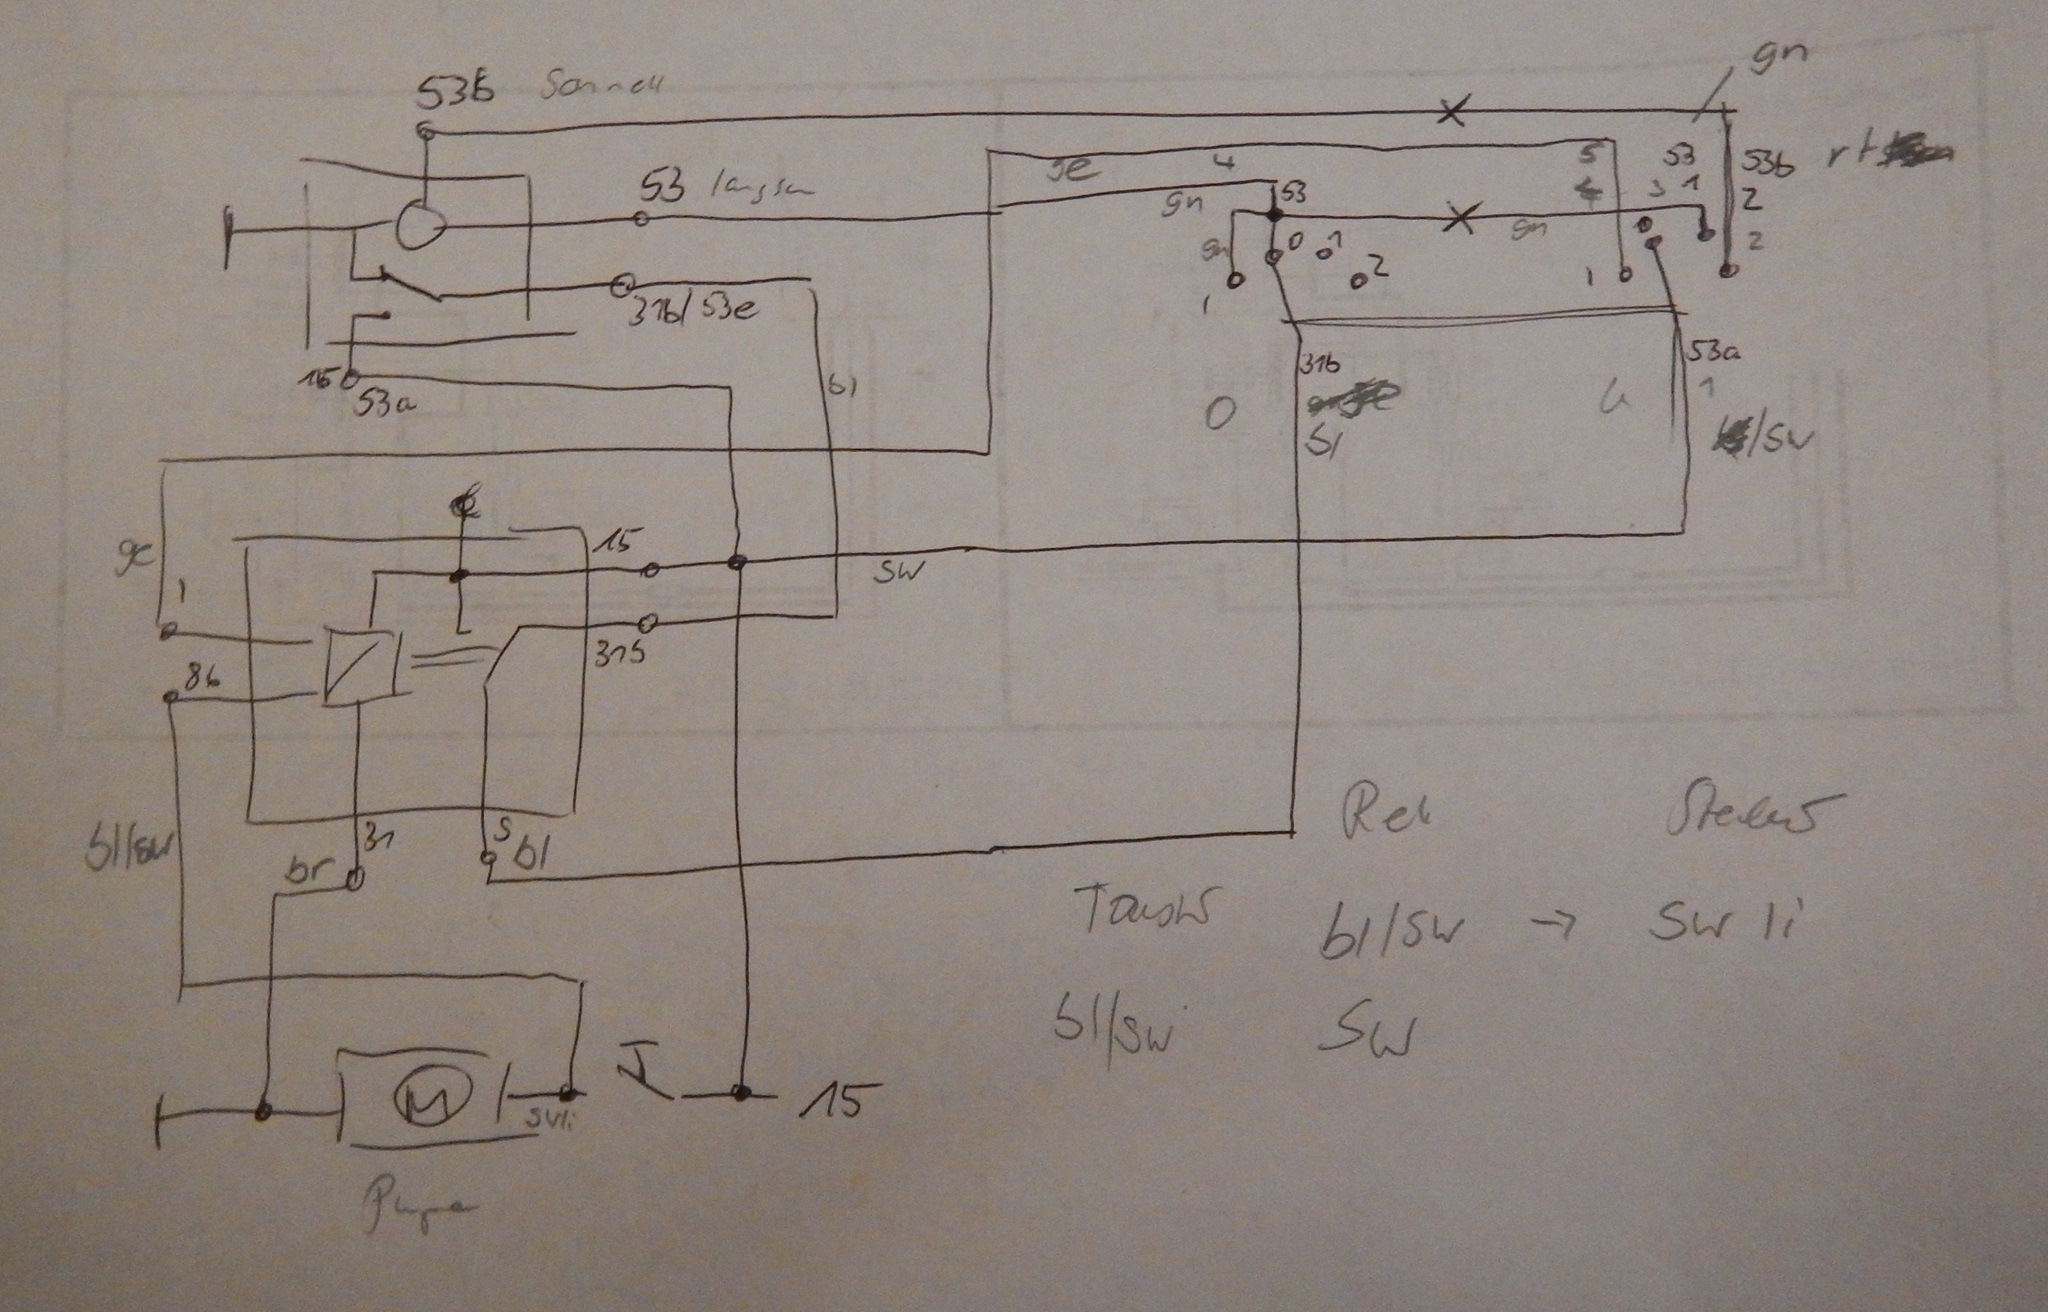 gn
53b
5 53 53b rt
ge 4 4 3 1 2
53 langsam gn 53
gn gn
0 1 2 1 1 2
31b/53e
15 53a 31b 53a
bl 0 1
bl /sw
15
ge sw
1
31b
86
31 S
bl/sw br bl
Rel
bl/sw → sw li
bl/sw sw
M swli 15